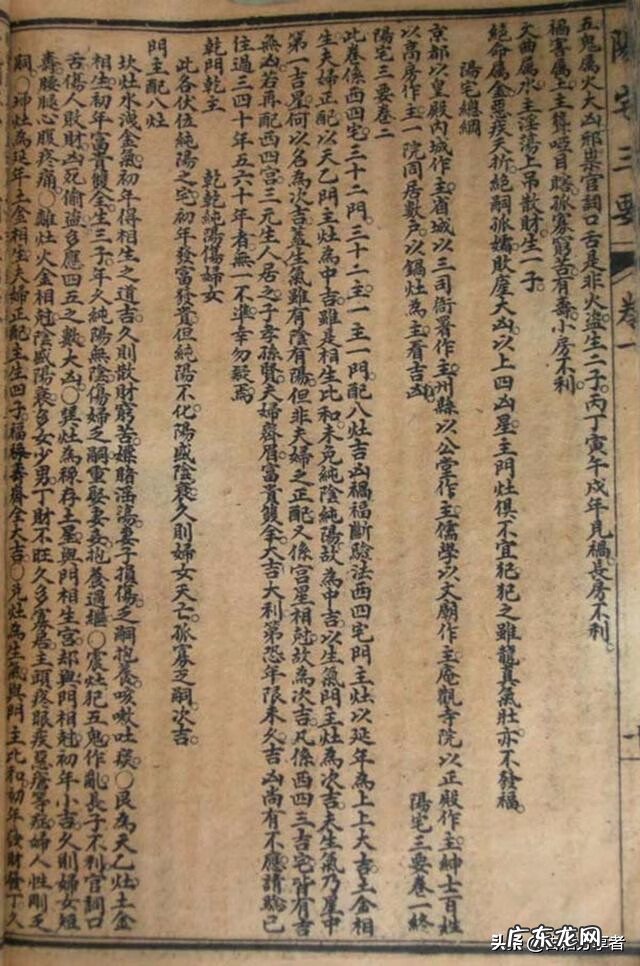 陽宅三要 卷一
五鬼屬火大凶邪祟官詞口舌是非火盜生二子丙丁寅午戌年見禍長房不利
禍害屬土主聾啞目瞎孤寡窮苦有壽小房不利
文曲屬水主淫蕩上吊散財生一子
絕命屬金惡疾夭折絕嗣孤孀敗產大凶以上四凶星主門灶俱不宜犯犯之雖龍真氣壯亦不發福
陽宅總綱
京都以皇殿內城作主省城以三司衙署作主州縣以公堂作主儒學以文廟作主庵觀寺院以正殿作主紳士百姓
以高房作主一院同居數戶以鍋灶為主看吉凶 陽宅三要卷一終
陽宅三要卷二
此卷係西四宅三十二門三十二主一主一門配八灶吉凶禍福斷驗法西四宅門主灶以延年為上上大吉土金相
生夫婦正配以天乙門主灶為中吉雖是相生比和未免純陰純陽故為中吉以生氣門主灶為次吉夫生氣乃星中
第一吉星何以名為次吉蓋生氣雖有陰有陽但非夫婦之正配又係宮星相尅故為次吉凡係西四三吉宅皆有吉
無凶若再配西四宮三元生人居之子孝孫賢夫婦齊眉富貴雙全大吉大利第恐年限未久吉凶尚有不應請驗已
往過三四十年五六十年者無一不準幸勿疑焉
乾門乾主 乾乾純陽傷婦女
此名伏位純陽之宅初年發富發貴但純陽不化陽盛陰衰久則婦女夭亡孤寡乏嗣次吉
門主配八灶
坎灶水洩金氣初年得相生之道吉久則散財窮苦嫖賭淫蕩妻子損傷乏嗣抱養咳嗽吐痰○艮為天乙灶土金
相生初年富貴雙全生三子年久純陽無陰傷婦乏嗣重娶妻妾抱養過繼○震灶犯五鬼作亂長子不利官詞口
舌傷人敗財凶死偷盜多應四五之數大凶○巽灶為祿存土星與門相生宮却與門相尅初年小吉久則婦女短
壽腰腿心腹疼痛○離灶火金相尅陰盛陽衰多女少男丁財不旺久多寡居主頭疼眼疾惡瘡等症婦人性剛乏
嗣○坤灶為延年土金相生夫婦正配主生四子福祿壽齊全大吉○兌灶為生氣與門主比和初年發財發丁久
头条
分享者
广东龙网